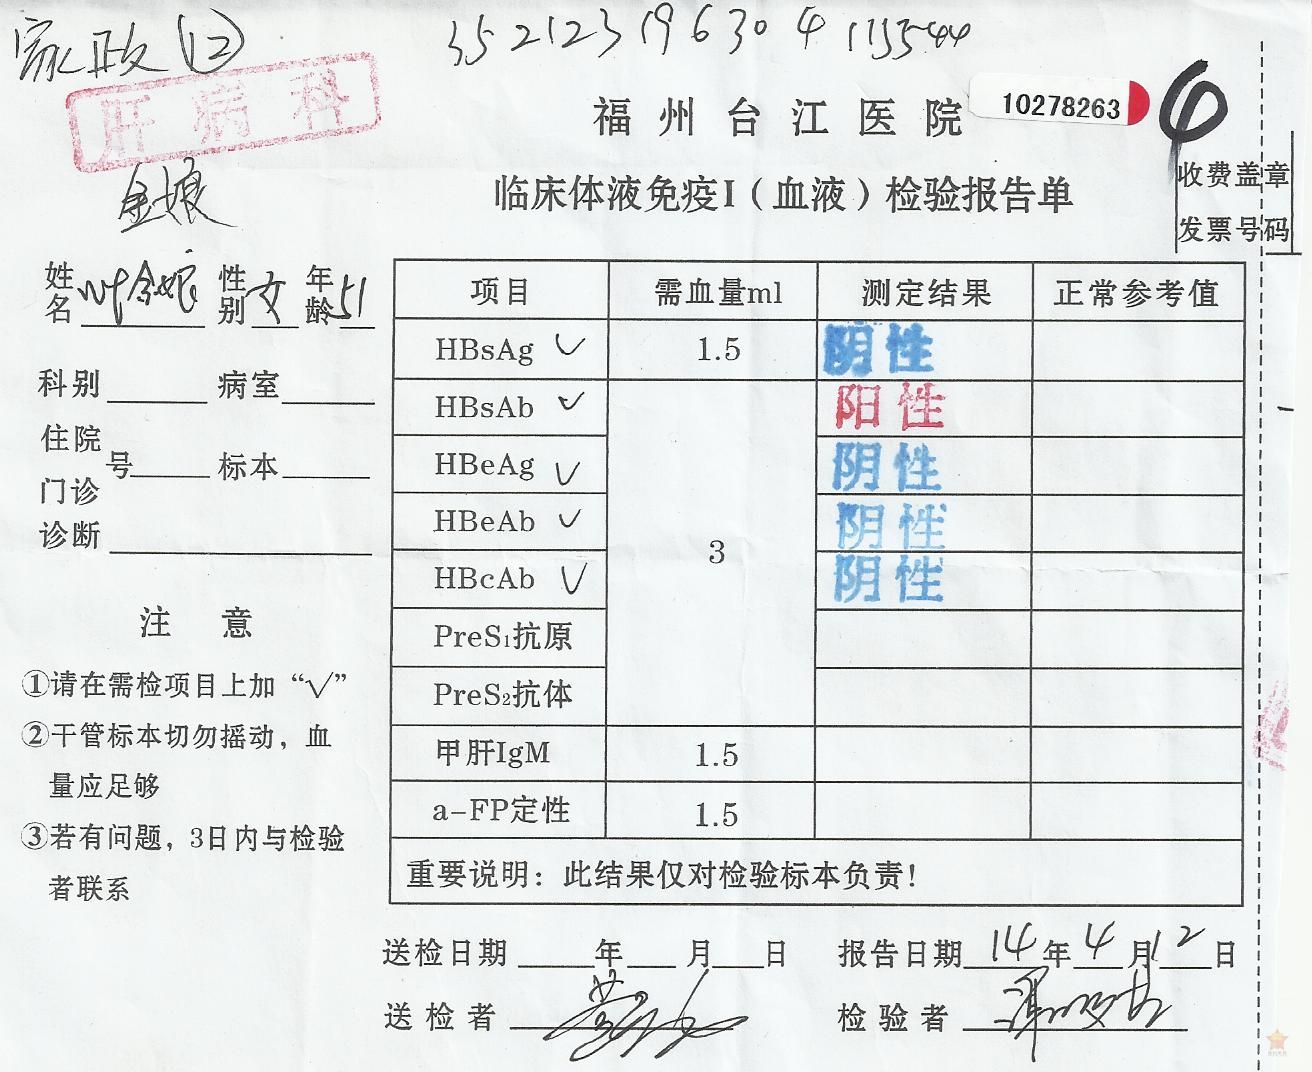 家政(12)
35212319630411554
肝病科
福州台江医院
10278263
6
临床体液免疫I（血液）检验报告单
收费盖章
发票号码
金娘
姓名 叶金娘 性别 女 年龄 51
科别 病室
住院号 标本
门诊
诊断
注 意
①请在需检项目上加“√”
②干管标本切勿摇动，血
量应足够
③若有问题，3日内与检验
者联系
项目 需血量ml 测定结果 正常参考值
HBsAg √ 1.5 阴性
HBsAb √ 阳性
HBeAg √ 阴性
HBeAb √ 3 阴性
HBcAb √ 阴性
PreS₁抗原
PreS₂抗体
甲肝IgM 1.5
a-FP定性 1.5
重要说明：此结果仅对检验标本负责！
送检日期 年 月 日 报告日期 14年4月12日
送检者 检验者